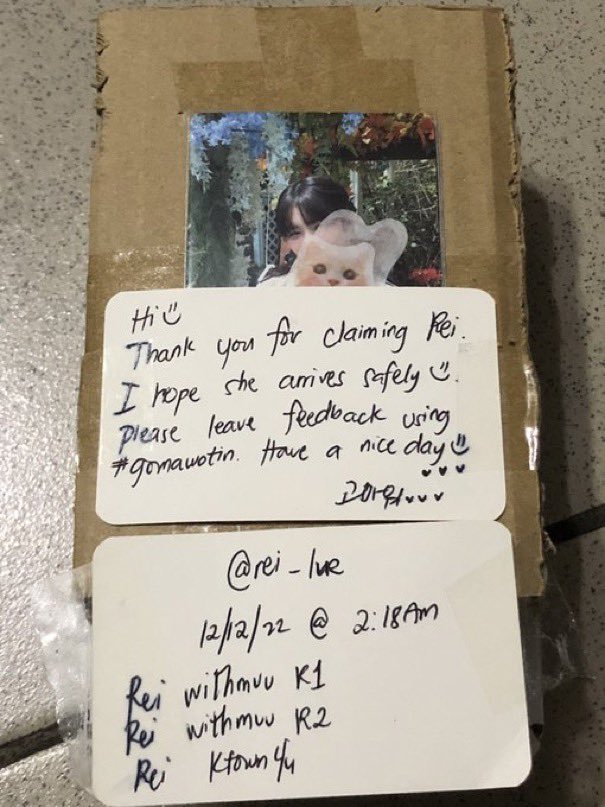 Hi
Thank you for claiming Rei.
I hope she arrives safely.
Please leave feedback using
#gomawotin. Have a nice day
고마워
@rei_lve
12/12/22 @ 2:18Am
Rei withmuu R1
Rei withmuu R2
Rei Ktown4u